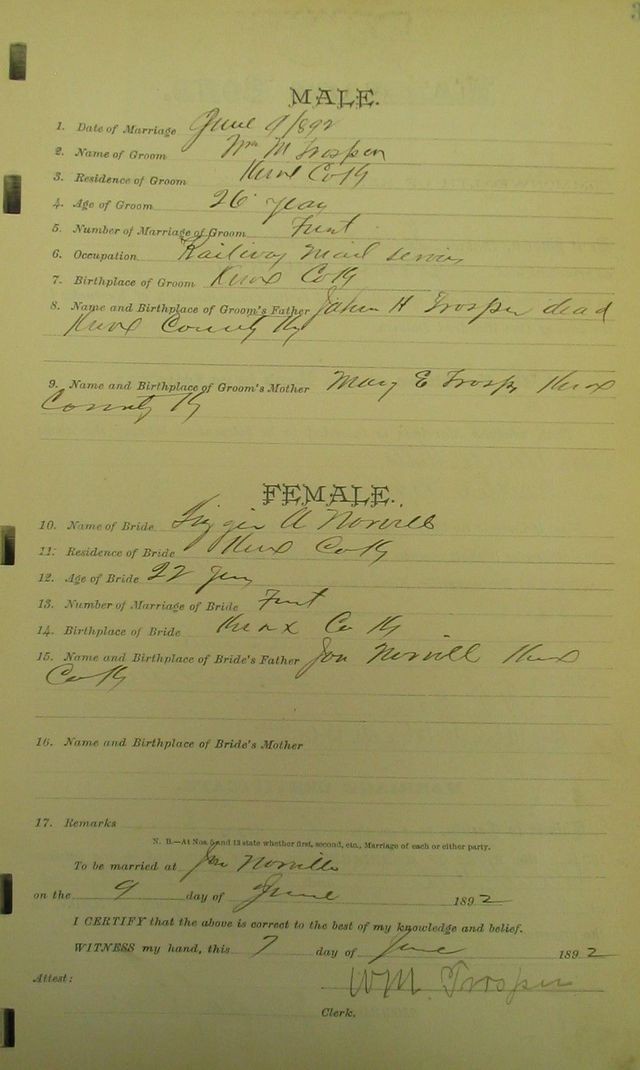 MALE.
1. Date of Marriage June 9/892
2. Name of Groom Wm M Trosper
3. Residence of Groom Knox Co Ky
4. Age of Groom 26 years
5. Number of Marriage of Groom First
6. Occupation Railway Mail service
7. Birthplace of Groom Knox Co Ky
8. Name and Birthplace of Groom's Father H Trosper dead
Knox County Ky
9. Name and Birthplace of Groom's Mother Mary E Trosper Knox
County Ky
FEMALE.
10. Name of Bride Lizzie A Norvell
11. Residence of Bride Knox Co Ky
12. Age of Bride 22 years
13. Number of Marriage of Bride First
14. Birthplace of Bride Knox Co Ky
15. Name and Birthplace of Bride's Father Norvill Knox
Co Ky
16. Name and Birthplace of Bride's Mother
17. Remarks
N. B.—At Nos. 5 and 13 state whether first, second, etc., Marriage of each or either party.
To be married at Norvills
on the 9 day of June 1892
I CERTIFY that the above is correct to the best of my knowledge and belief.
WITNESS my hand, this 7 day of June 1892
Attest: W M Trosper
Clerk.